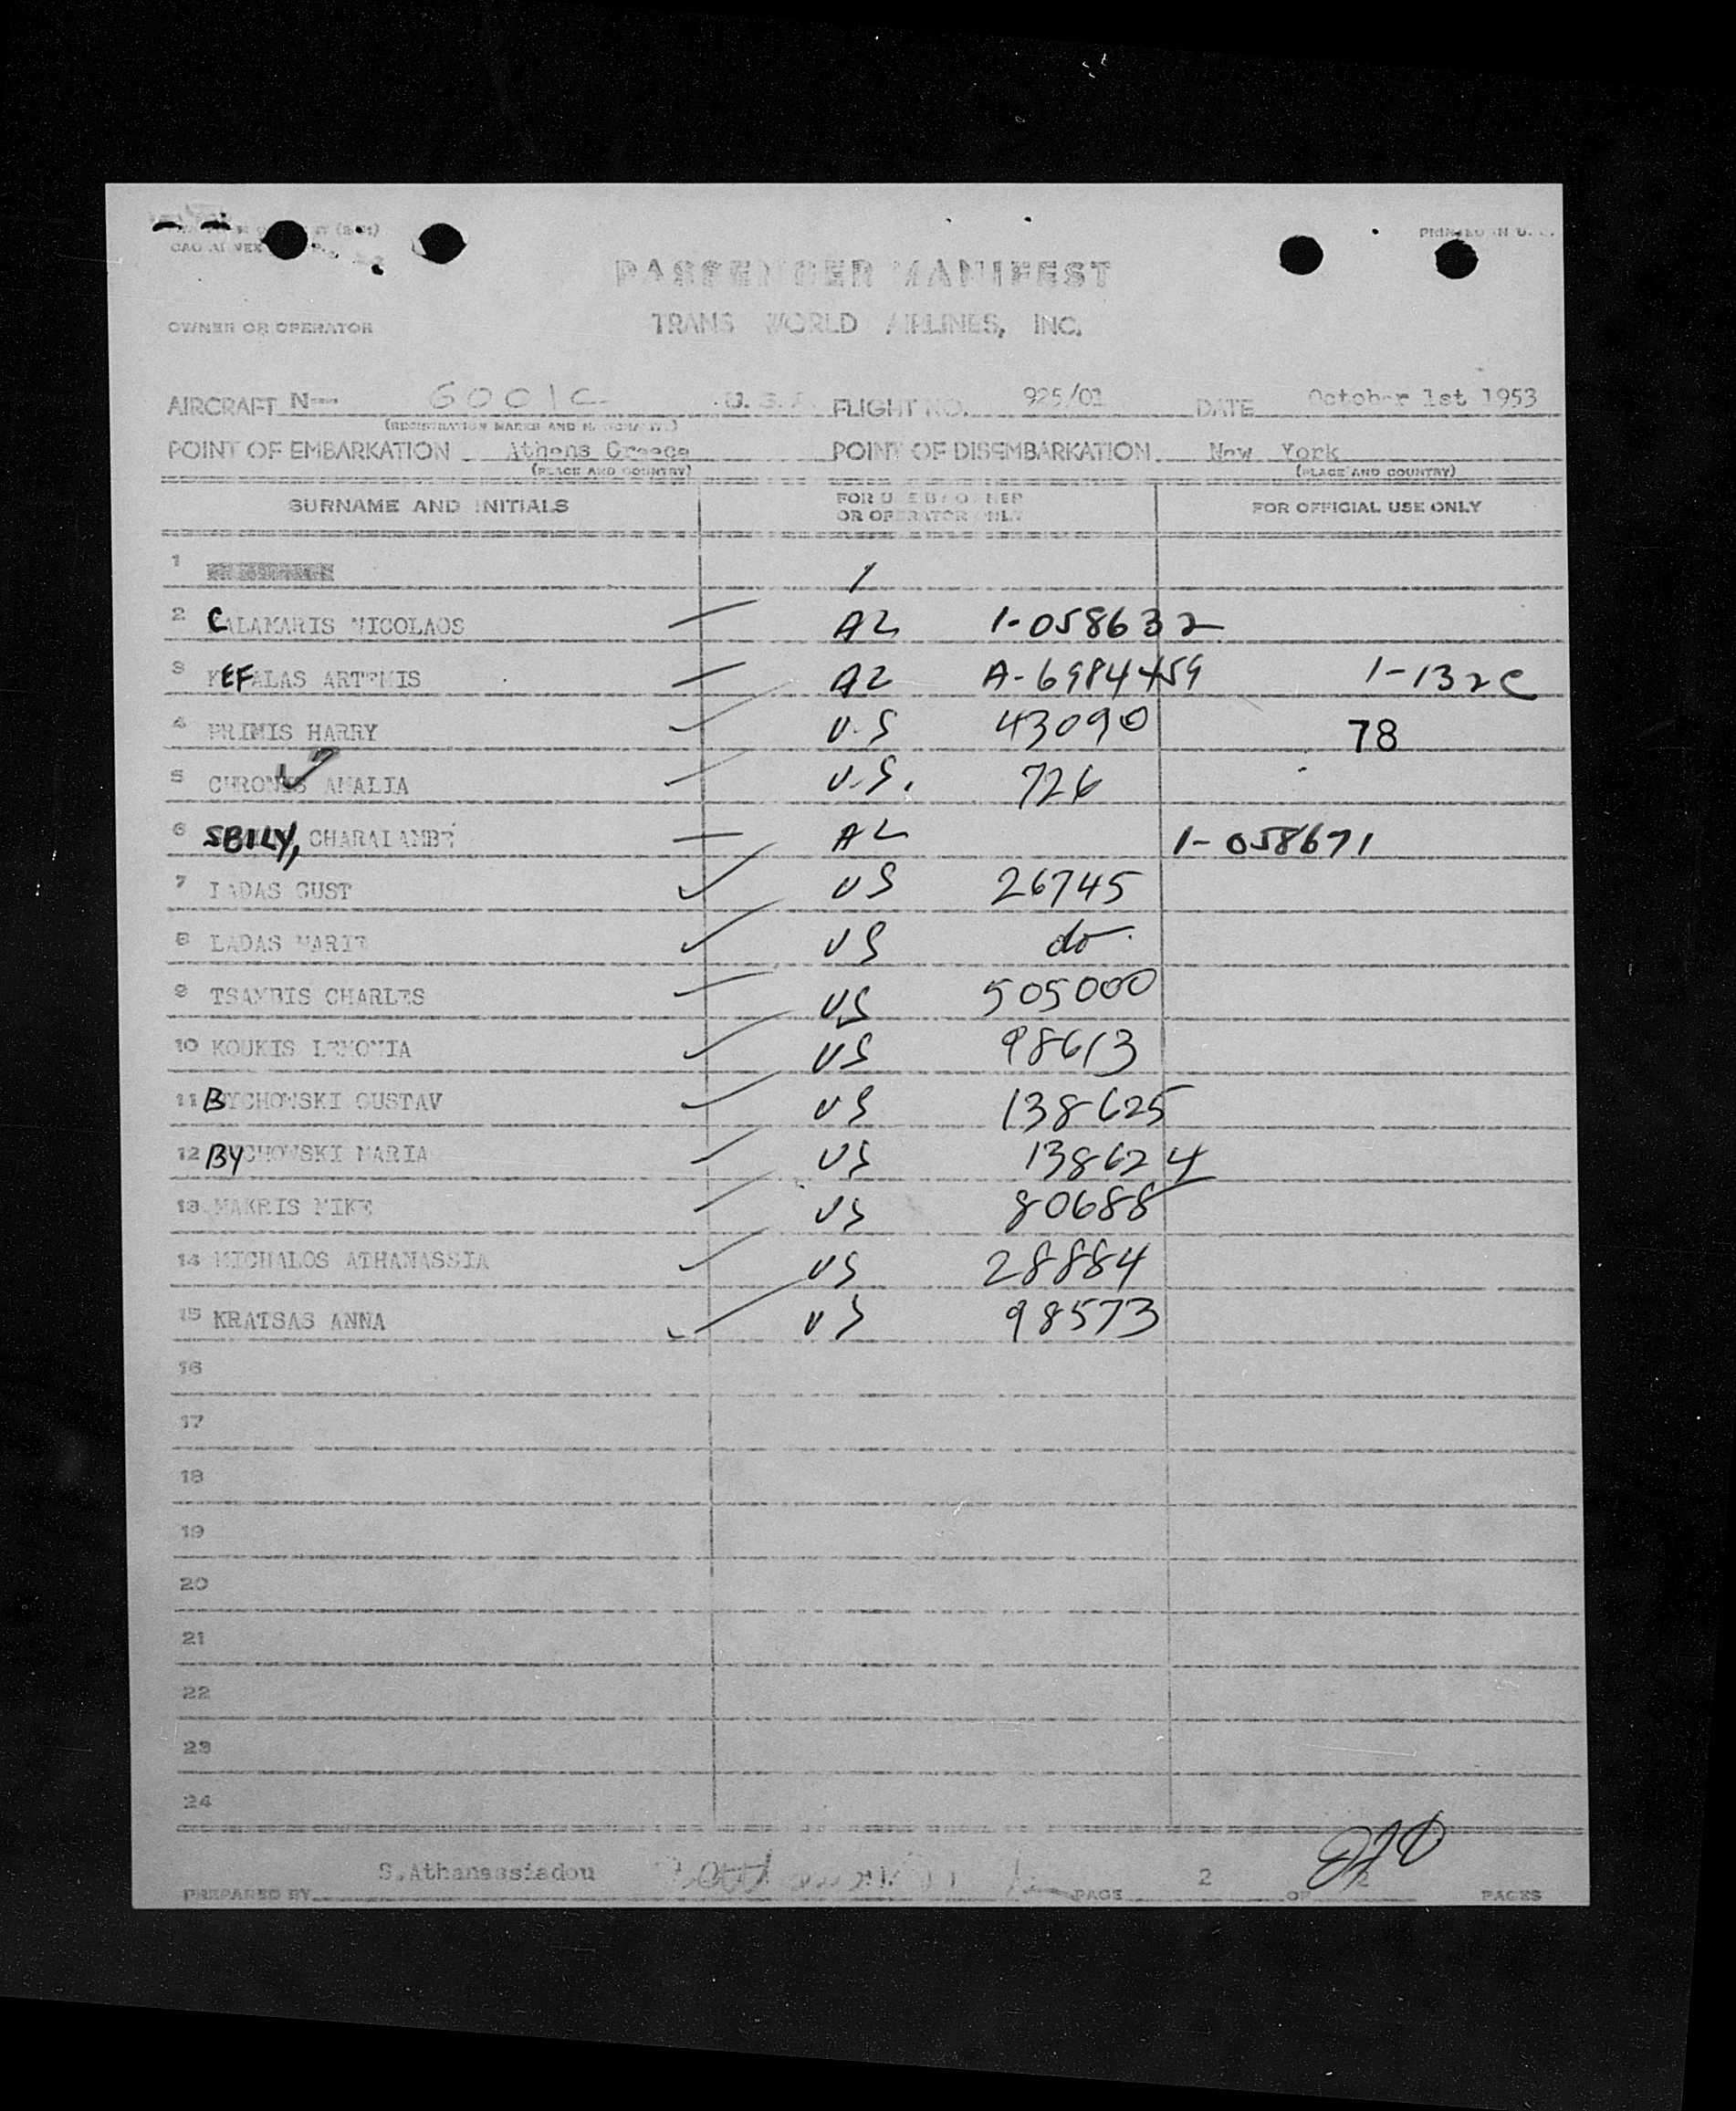 PRINTED IN U.S.
PASSENGER MANIFEST
OWNER OR OPERATOR TRANS WORLD AIRLINES, INC.
AIRCRAFT N— 6001C U.S.A. FLIGHT NO. 925/01 DATE October 1st 1953
(REGISTRATION MARKS AND NATIONALITY)
POINT OF EMBARKATION Athens Greece POINT OF DISEMBARKATION New York
(PLACE AND COUNTRY) (PLACE AND COUNTRY)
SURNAME AND INITIALS FOR USE BY OWNER OR OPERATOR ONLY FOR OFFICIAL USE ONLY
1
2 CALAMARIS NICOLAOS AL 1-058632
3 KEFALAS ARTEMIS AL A-6984459 1-132C
4 PRIMIS HARRY U.S 43090 78
5 CHRONIS AMALIA U.S. 726
6 SBILY, CHARALAMBE AL 1-058671
7 LADAS GUST US 26745
8 LADAS MARIE US do
9 TSAMBIS CHARLES US 505000
10 KOUKIS LEMONIA US 98613
11 BYCHOWSKI GUSTAV US 138625
12 BYCHOWSKI MARIA US 138624
13 MAKRIS MIKE US 80688
14 MICHALOS ATHANASSIA US 28884
15 KRATSAS ANNA US 98573
16
17
18
19
20
21
22
23
24
PREPARED BY S.Athanassiadou PAGE 2 OF 2 PAGES